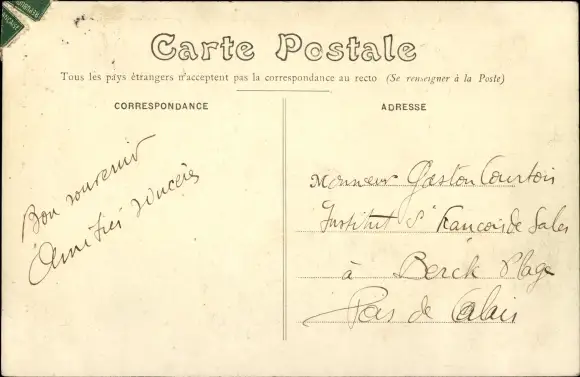 Carte Postale
Tous les pays étrangers n'acceptent pas la correspondance au recto (Se renseigner à la Poste)
CORRESPONDANCE
ADRESSE
Bon souvenir
Amitiés sincères
Monsieur Gaston Courtois
Institut St François de Sales
à Berck Plage
Pas de Calais